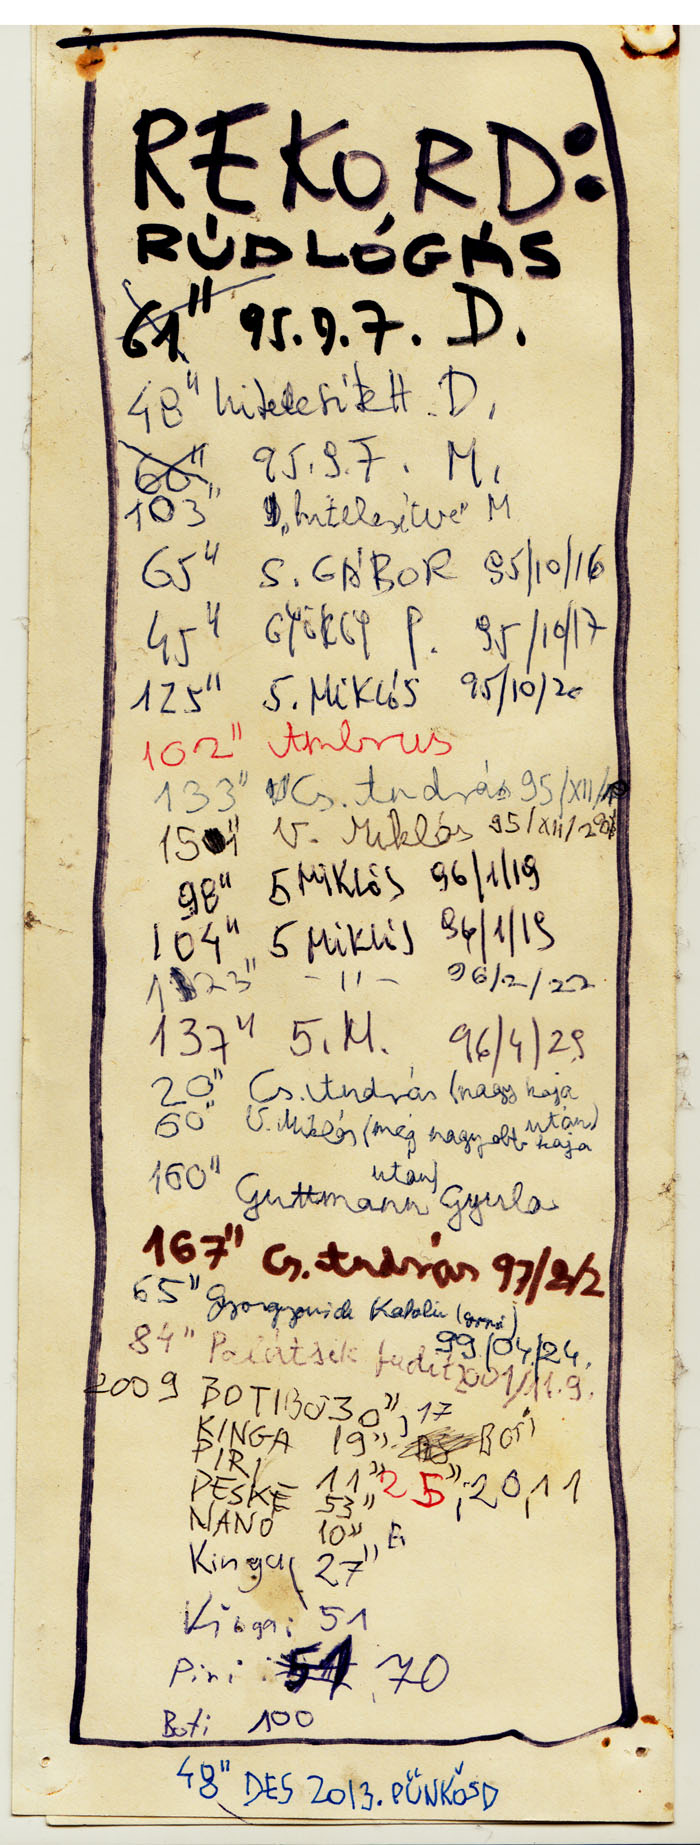 REKORD:
RÚDLÓGÁS
61" 95.9.7. D.
48" hitelesített D.
66" 95.9.7. M.
103" „hitelesítve" M
65" S. GÁBOR 95/10/16
45" GYÖKGY P. 95/10/17
125" S. MIKLÓS 95/10/20
102" Ambrus
133" Cs. András 95/XII/
151" V. Miklós 95/XII/29
98" S MIKLÓS 96/1/19
104" S MIKLÓS 96/1/19
123" -"- 96/2/22
137" S. M. 96/4/29
20" Cs. András (nagy kaja
után)
60" V. Miklós (még nagyobb kaja
után)
160" Guttmann Gyula
167" Cs. András 97/2/2
65" Katalin
99/04/24.
84" Palátsik Judit 2001/11.9.
2009 BOTIBO 30", 17
KINGA 19" BOTI
PIRI 11" 25", 20, 11
PESKE 53"
NANÓ 10"
Kinga 27"
Kinga: 51
Piri: 51, 70
Boti 100
48" DES 2013. PÜNKÖSD